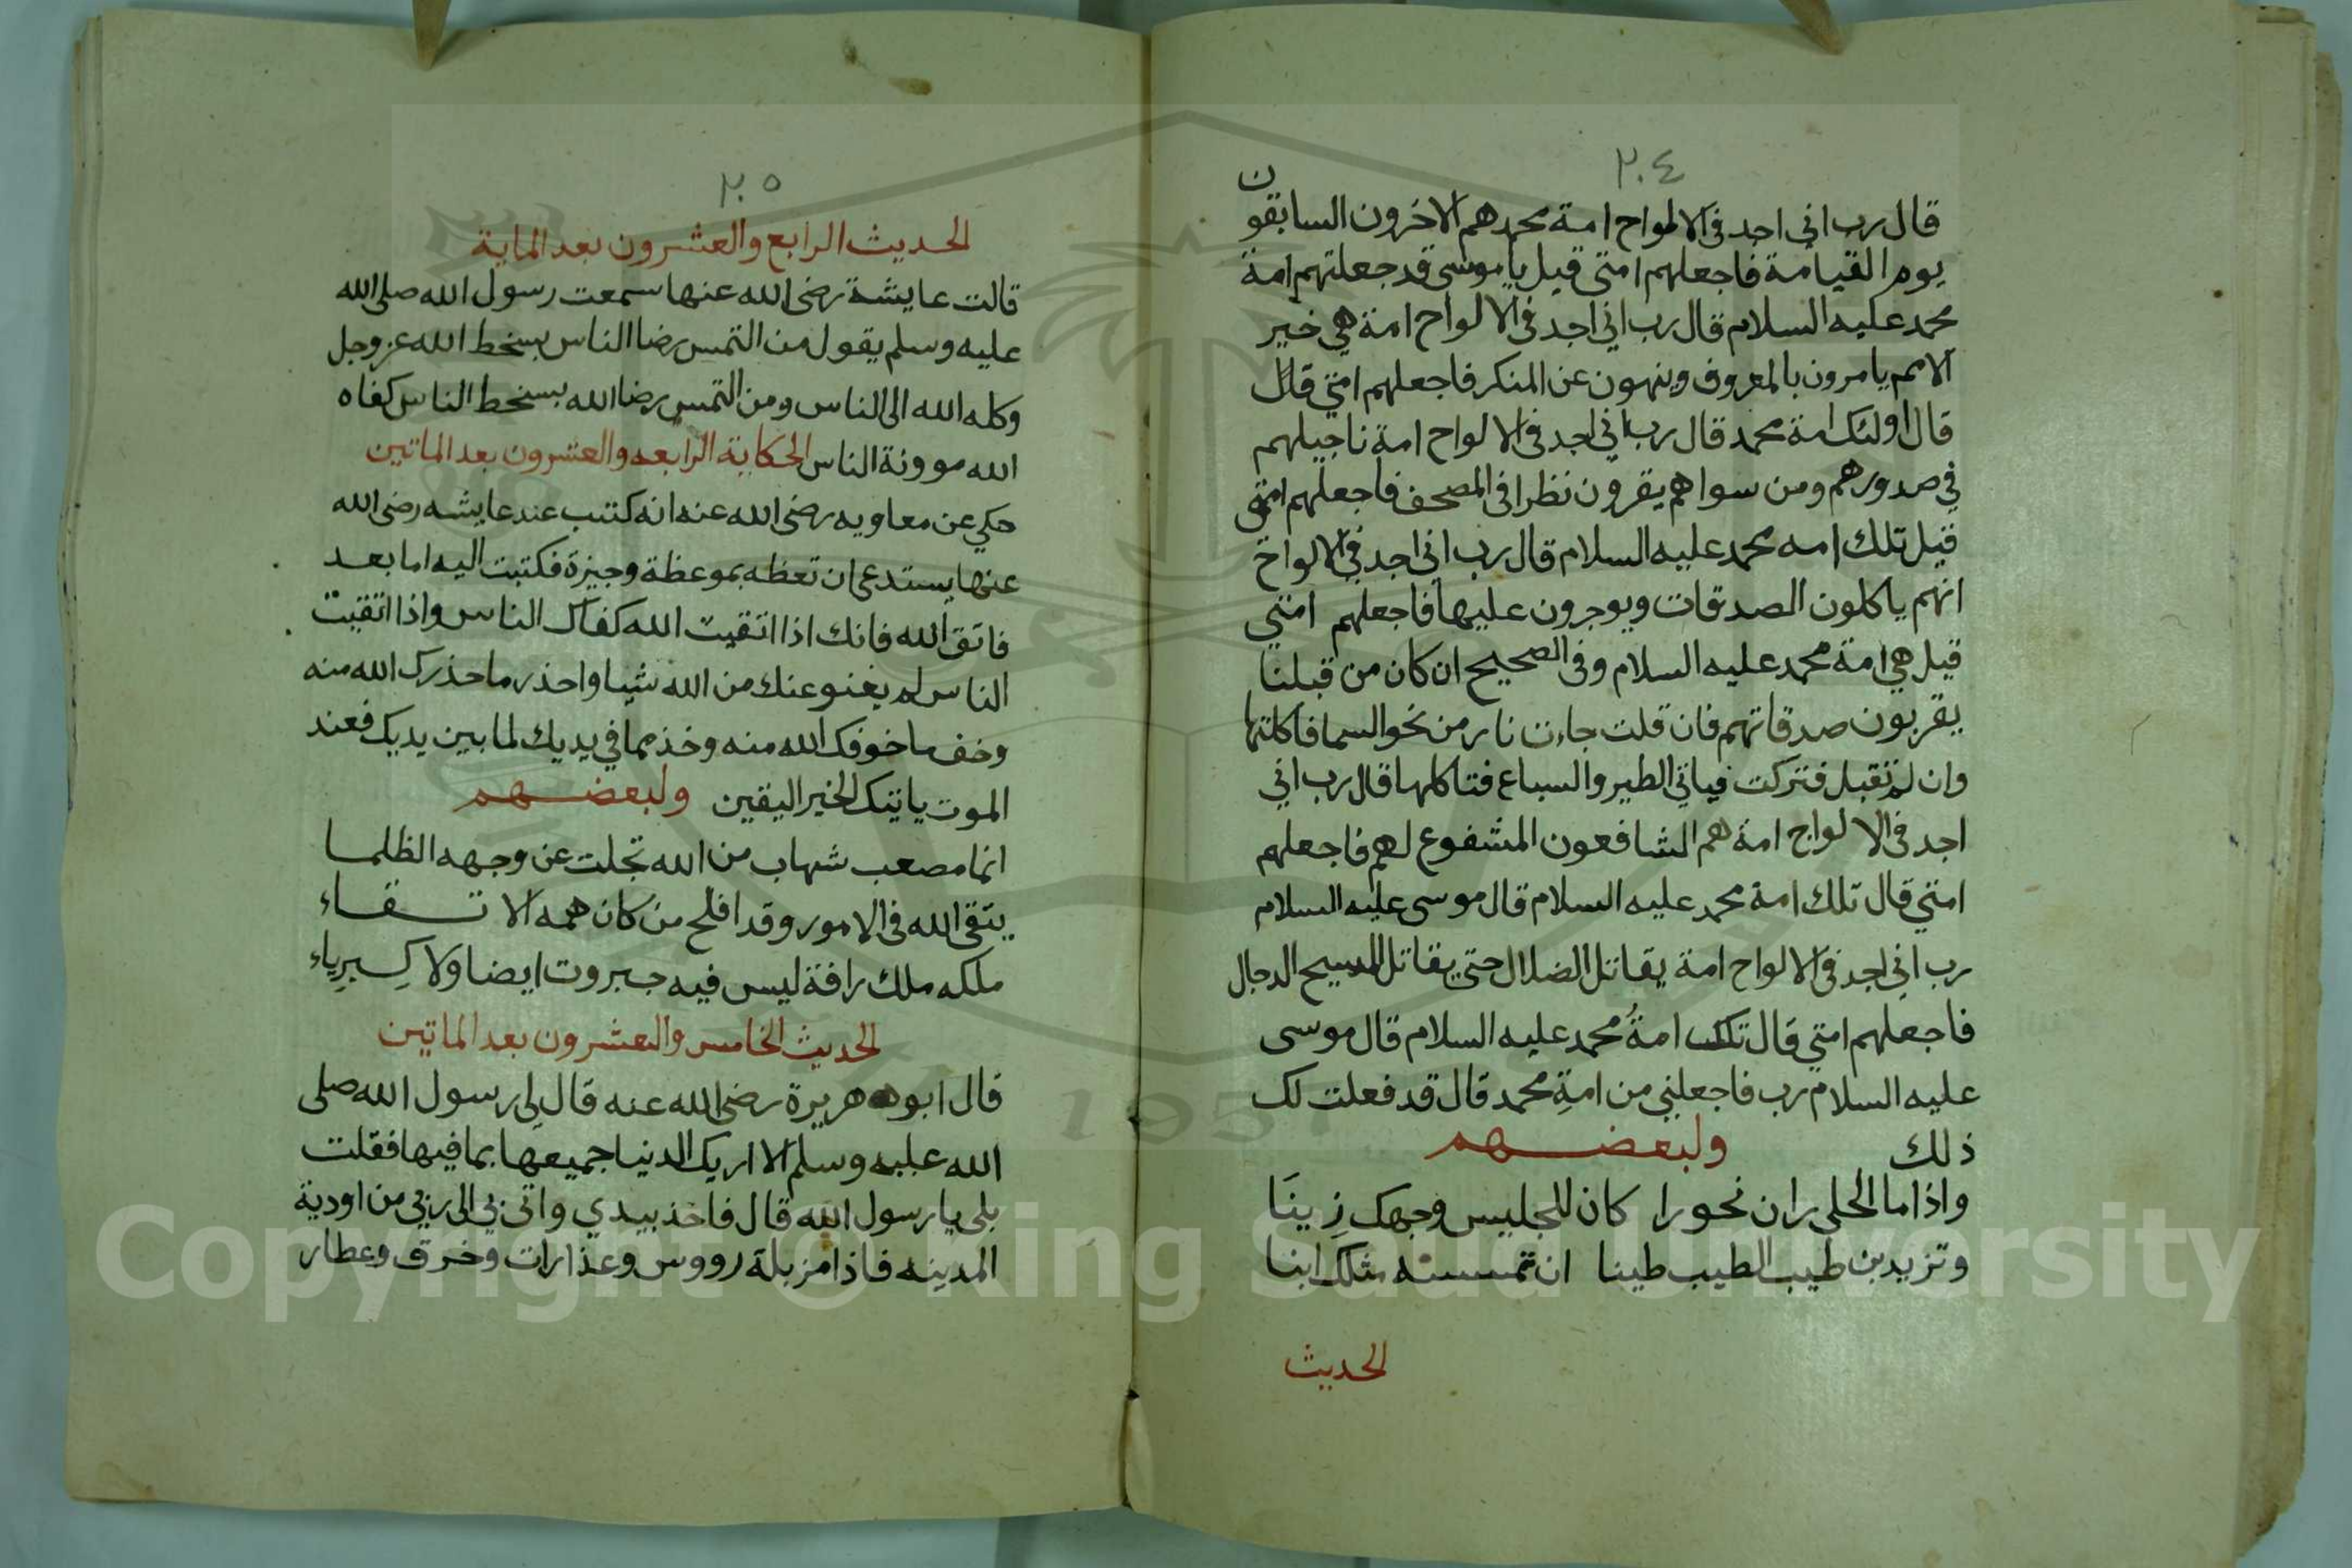 ٢٠٤
قال رب اني اجد في الالواح امة محمد هم الاخرون السابقون
يوم القيامة فاجعلهم امتي قيل يا موسى قد جعلتهم امة
محمد عليه السلام قال رب اني اجد في الالواح امة هي خير
الامم يامرون بالمعروف وينهون عن المنكر فاجعلهم امتي قال
قال اولئك امة محمد قال رب اني اجد في الالواح امة ناجيلهم
في صدورهم ومن سواهم يقرون نظرا في المصحف فاجعلهم امتي
قيل تلك امه محمد عليه السلام قال رب اني اجد في الالواح
انهم ياكلون الصدقات ويوجرون عليها فاجعلهم امتي
قيل هي امة محمد عليه السلام وفي الصحيح ان كان من قبلنا
يقربون صدقاتهم فان قلت جاءت نار من نحو السما فاكلتها
وان لم تقبل فتركت فياتي الطير والسباع فتاكلها قال رب اني
اجد في الالواح امة هم الشافعون المشفوع لهم فاجعلهم
امتي قال تلك امة محمد عليه السلام قال موسى عليه السلام
رب اني اجد في الالواح امة يقاتل الضلال حتى يقاتل المسيح الدجال
فاجعلهم امتي قال تلك امةُ محمد عليه السلام قال موسى
عليه السلام رب فاجعلني من امةِ محمد قال قد فعلت لك
ذلك ولبعضهم
واذا ما الحلى زان نحورا كان للجليس وجهك زِينَا
وتزيدين طيب الطيب طينا ان تمسسنه مثلك اينا
الحديث
٢٠٥
الحديث الرابع والعشرون بعد الماية
قالت عايشة رضي الله عنها سمعت رسول الله صلى الله
عليه وسلم يقول من التمس رضا الناس بسخط الله عز وجل
وكله الله الى الناس ومن التمس رضا الله بسخط الناس كفاه
الله موونة الناس الحكاية الرابعه والعشرون بعد الماتين
حكي عن معاويه رضي الله عنه انه كتب عند عايشه رضي الله
عنها يستدعي ان تعظه بموعظة وجيزة فكتبت اليه اما بعد
فاتق الله فانك اذا اتقيت الله كفاك الناس واذا اتقيت
الناس لم يغنو عنك من الله شيا واحذر ما حذرك الله منه
وخف ما خوفك الله منه وخذ مما في يديك لما بين يديك فعند
الموت ياتيك الخبر اليقين ولبعضهم
انما مصعب شهاب من الله تجلت عن وجهه الظلما
يتقي الله في الامور وقد افلح من كان همه الاتقاء
ملكه ملك رافة ليس فيه جبروت ايضا ولا كِبرِياء
الحديث الخامس والعشرون بعد الماتين
قال ابو هريرة رضي الله عنه قال لي رسول الله صلى
الله عليه وسلم الا اريك الدنيا جميعها بما فيها فقلت
بلى يا رسول الله قال فاخذ بيدي واتى بي الى من اودية
المدينه فاذا مزبلة رووس وعذارات وخرق وعطار
Copyright © King Saud University
1957